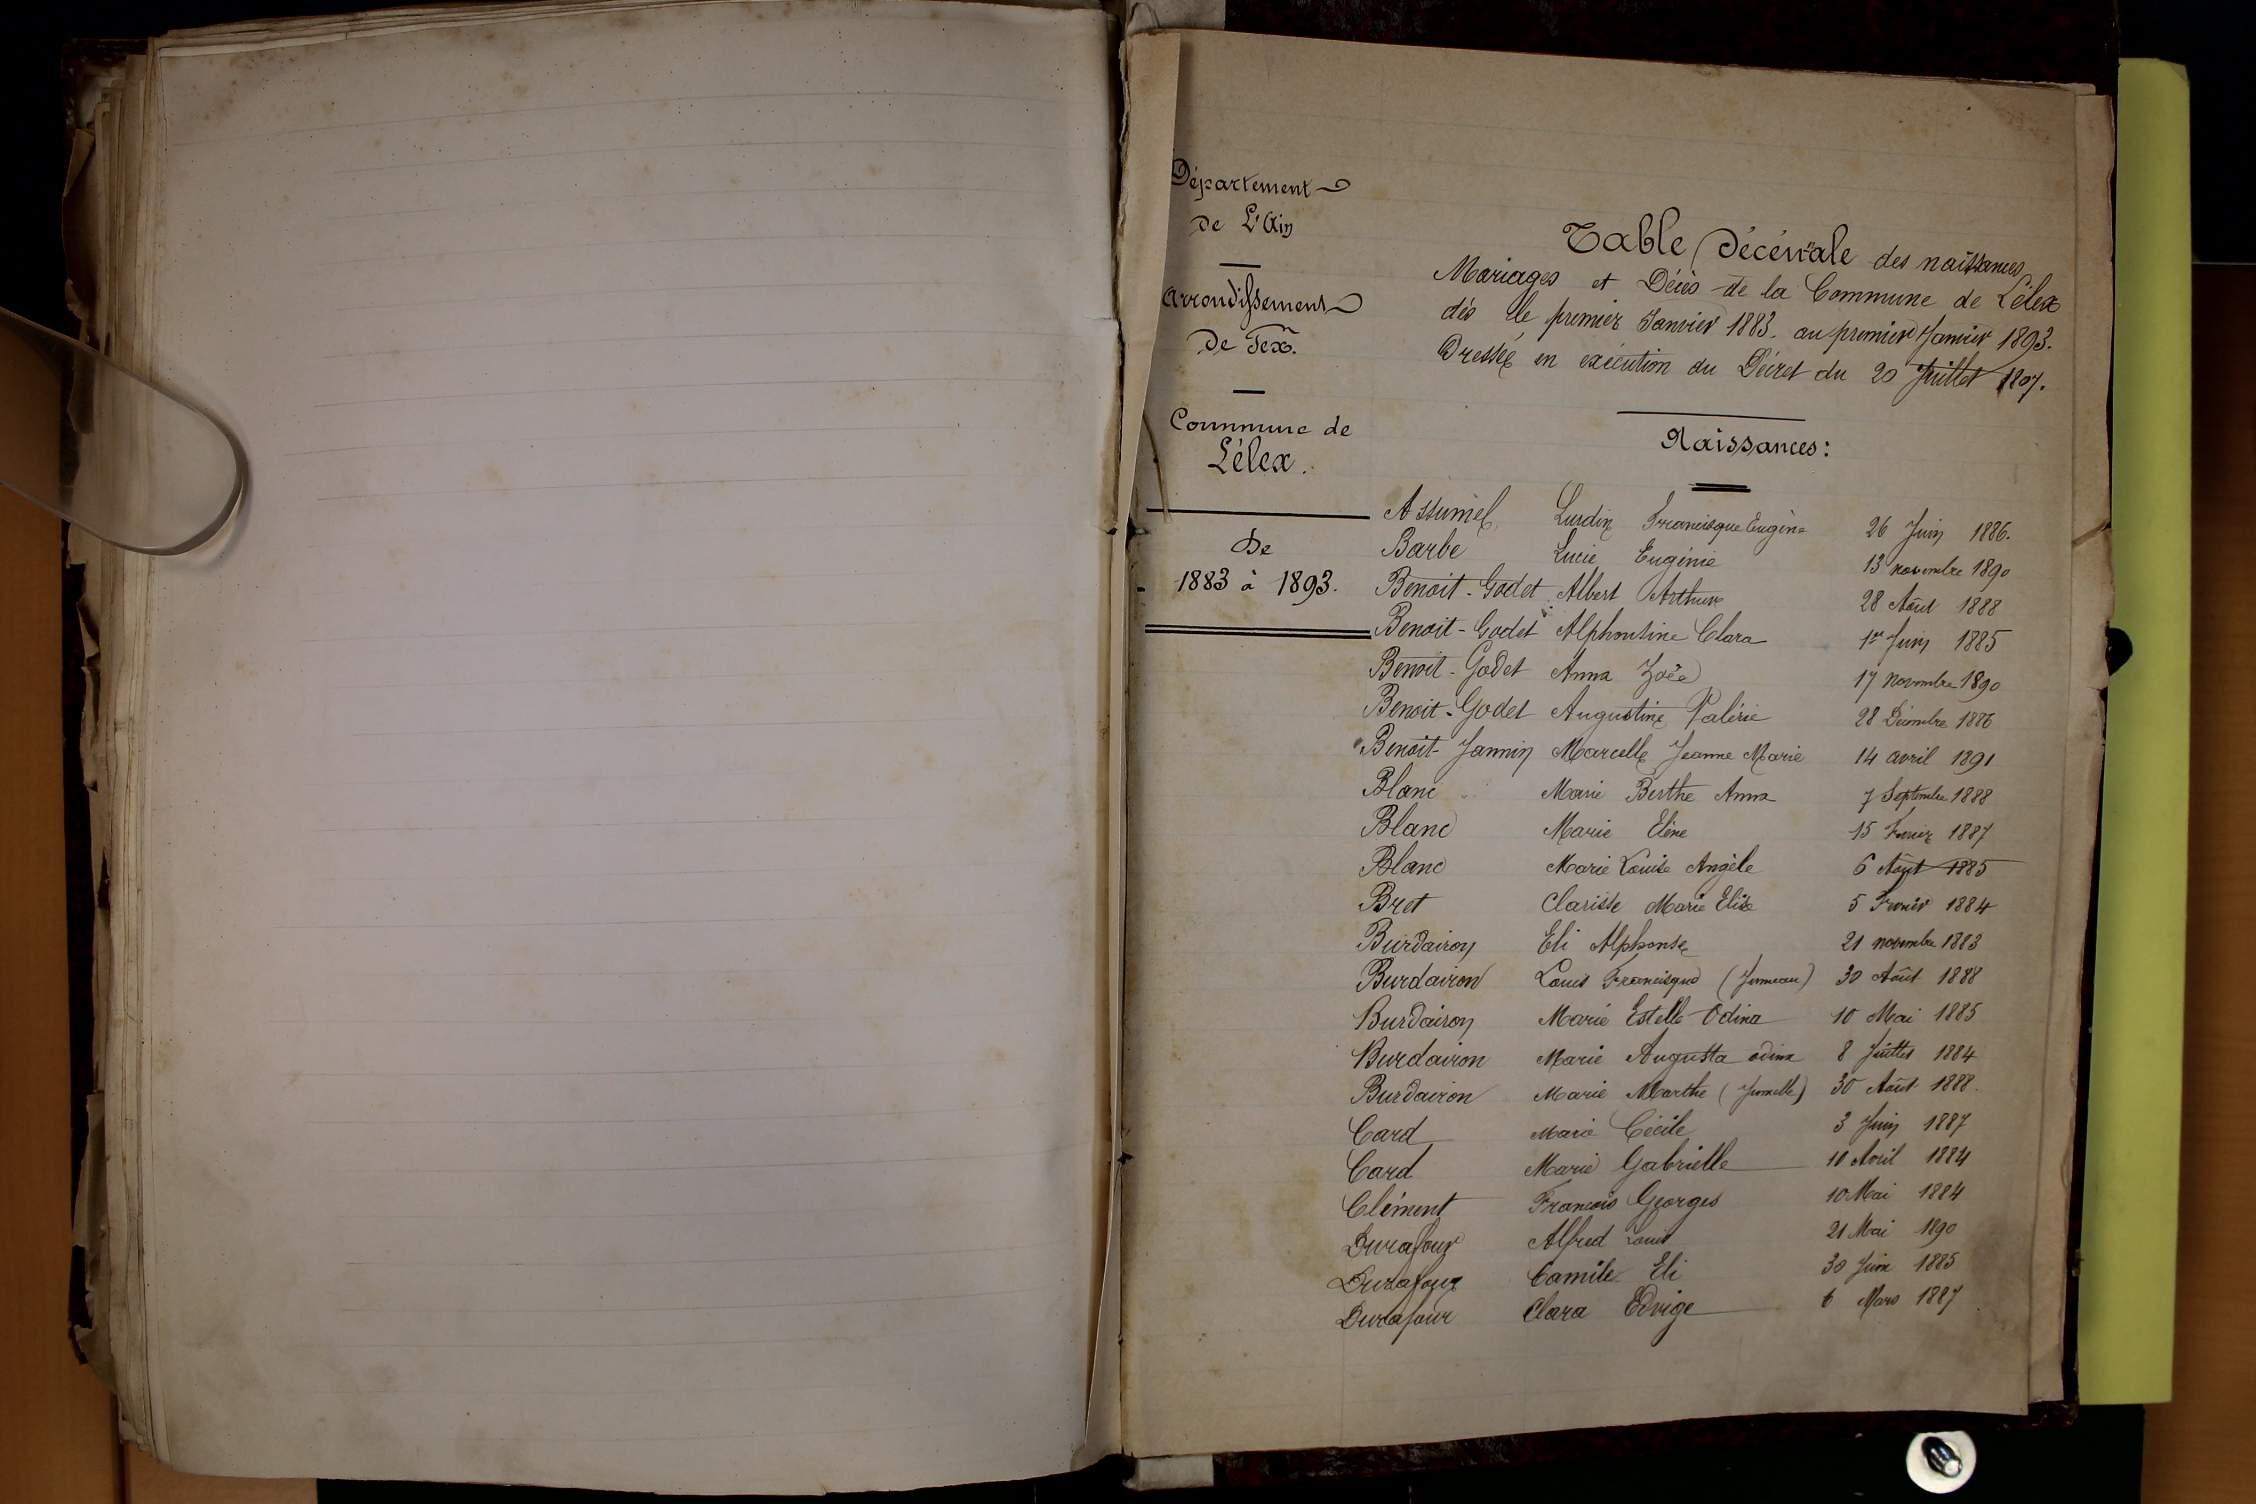 Département
de L'Ain
Arrondissement
De Gex.
Commune de
Lélex.
De
1883 à 1893.
Table Décennale des naissances
Mariages et Décès de la Commune de Lélex
dès le premier Janvier 1883. au premier Janvier 1893.
Dressée en exécution du Décret du 20 Juillet 1807.
Naissances:
Assumel Lurdin Francisque Eugène 26 Juin 1886.
Barbe Lucie Eugénie 13 novembre 1890
Benoit-Godet Albert Arthur 28 Août 1888
Benoit-Godet Alphonsine Clara 1er Juin 1885
Benoit-Godet Anna Zoée 17 novembre 1890
Benoit-Godet Augustine Valérie 28 Décembre 1886
Benoit-Jannin Marcelle Jeanne Marie 14 avril 1891
Blanc Marie Berthe Anna 7 Septembre 1888
Blanc Marie Elène 15 Février 1887
Blanc Marie Louise Angèle 6 Août 1885
Bret Clarisse Marie Elise 5 Février 1884
Burdairon Eli Alphonse 21 novembre 1883
Burdairon Louis Francisque (Jumeau) 30 Août 1888
Burdairon Marie Estelle Odina 10 Mai 1885
Burdairon Marie Augusta odina 8 Juillet 1884
Burdairon Marie Marthe (Jumelle) 30 Août 1888.
Card Marie Cécile 3 Juin 1887
Card Marie Gabrielle 10 Avril 1884
Clément François Georges 10 Mai 1884
Durafour Alfred Louis 21 Mai 1890
Durafour Camile Eli 30 Juin 1885
Durafour Clara Edvige 6 Mars 1887